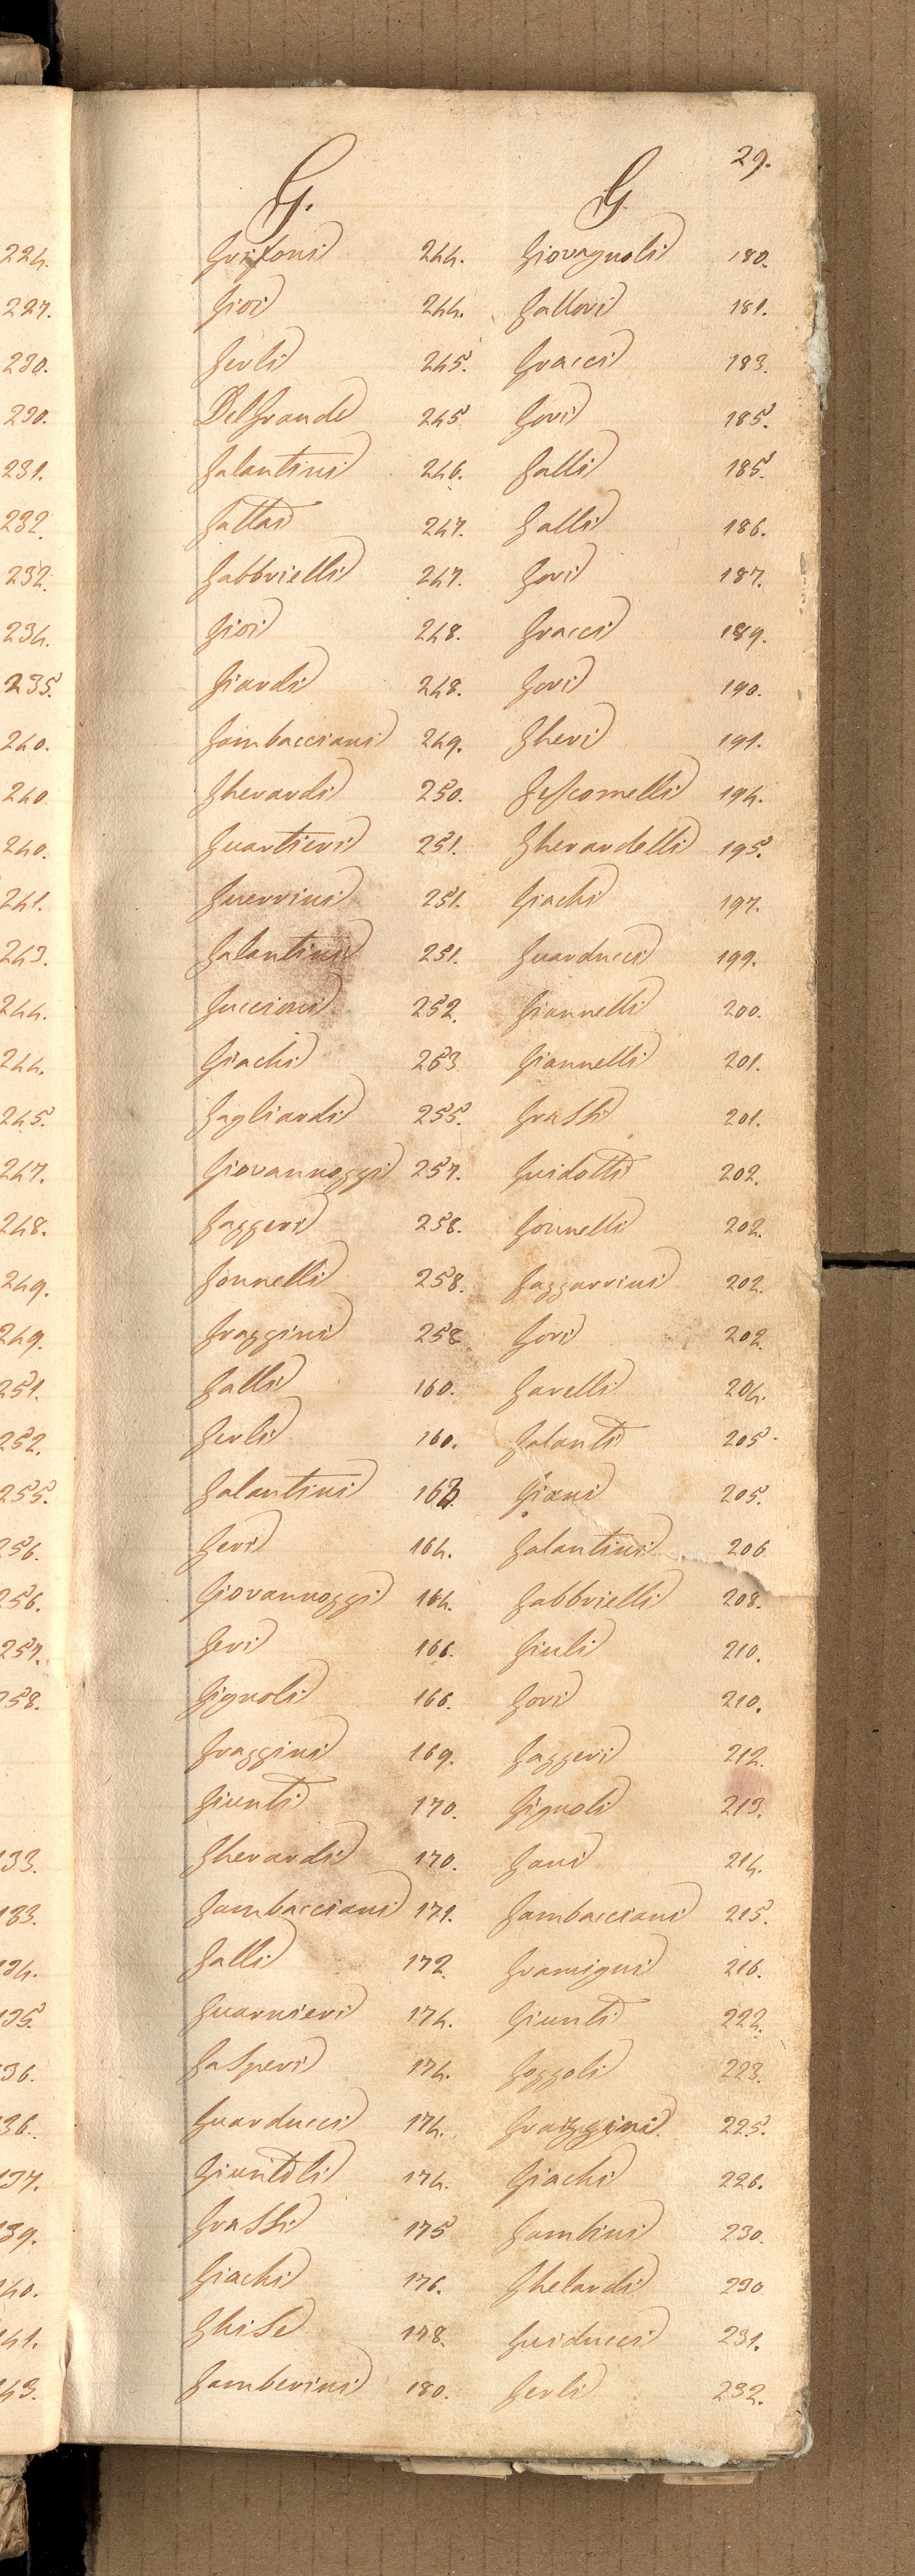 29.
G. G.
224. Grifoni 244. Giovagnoli 180.
227. Giori 244. Gallori 181.
230. Gerli 245. Gracci 183.
230. Del Grande 245 Gori 185.
231. Galantini 246. Galli 185.
232. Gattai 247. Galli 186.
232. Gabbrielli 247. Gori 187.
234. Giori 248. Gracci 189.
235. Giardi 248. Gori 190.
240. Gambacciani 249. Gheri 191.
240 Gherardi 250. Gescomelli 194.
240. Guartieri 251. Gherardelli 195.
241. Guerrini 251. Giachi 197.
243. Galantini 251. Guarducci 199.
244. Guccioni 252. Giannelli 200.
244. Giachi 253 Giannelli 201.
245. Gagliardi 255. Grassi 201.
247. Giovannoggi 257. Guidotti 202.
248. Gaggeri 258. Gonnelli 202.
249. Gonnelli 258. Gaggarrini 202.
249. Graggini 258 Gori 202.
251. Galli 160. Garelli 204.
252. Gerli 160. Galanti 205.
255. Galantini 163. Giani 205.
256. Geri 164. Galantini 206
256. Giovannoggi 164. Gabbrielli 208.
257. Geri 166. Giuli 210.
258. Gignoli 166. Gori 210.
Graggini 169. Gaggeri 212.
Giunti 170. Gignoli 213.
133. Gherardi 170. Gani 214.
133. Gambacciani 171. Gambacciani 215.
134. Galli 172. Gramigni 216.
135. Guarnieri 174. Giunti 222.
136. Gasperi 174. Goggoli 223.
136. Guarducci 174. Graggini 225.
137. Giuntoli 174. Giachi 226.
139. Grassi 175 Gambini 230.
140. Giachi 176. Ghelardi 230
141. Ghise 178. Guiducci 231.
143. Gamberini 180. Gerli 232.